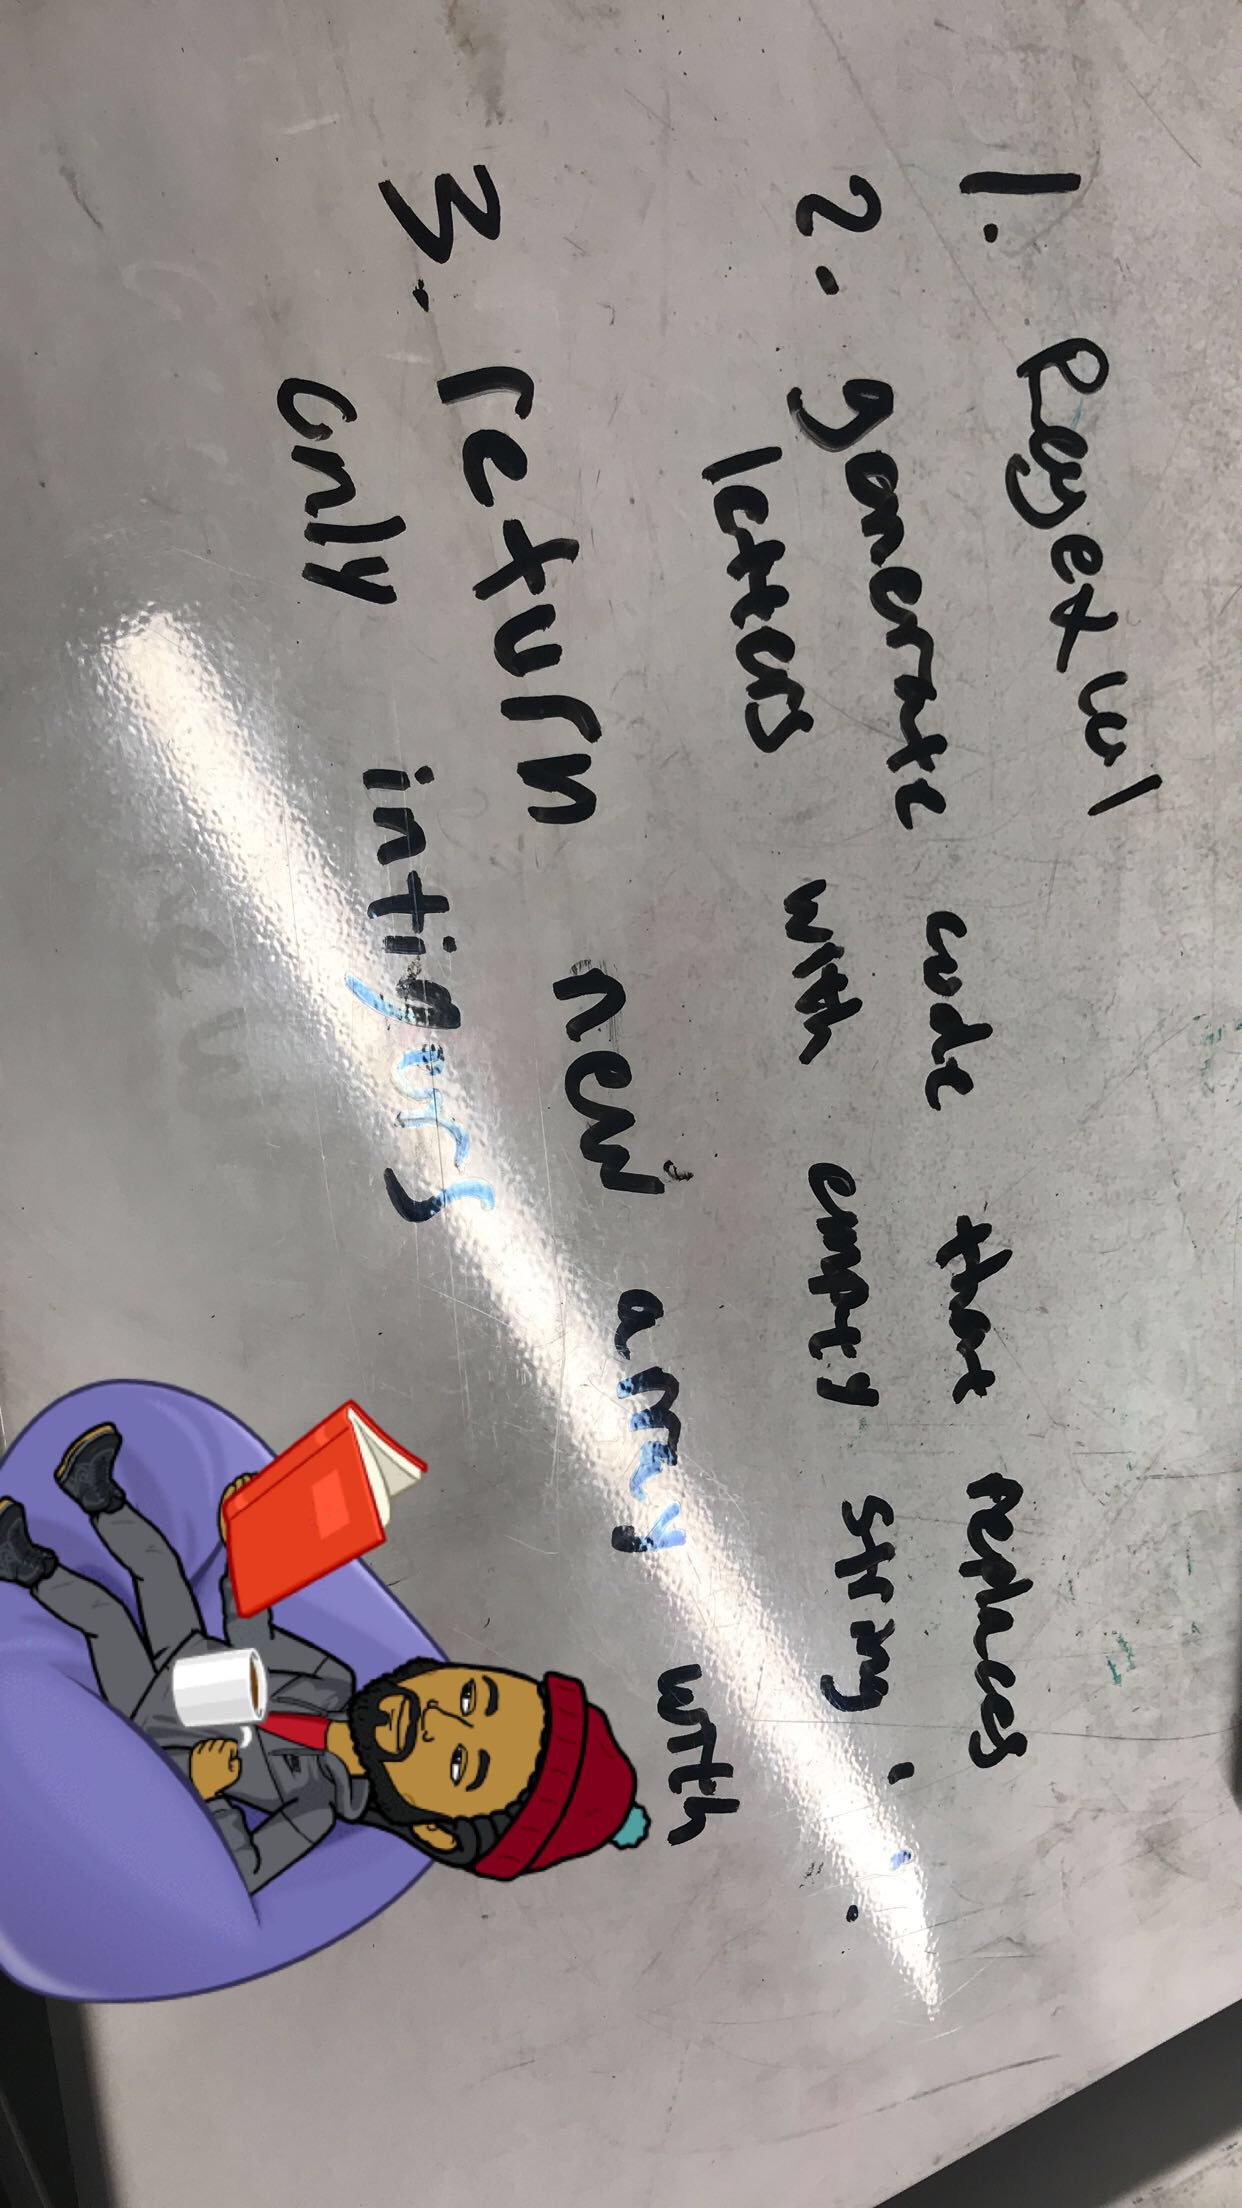 1. Regexul
2. generate code that replaces
letters with empty string;
3. return new array with
only intigers